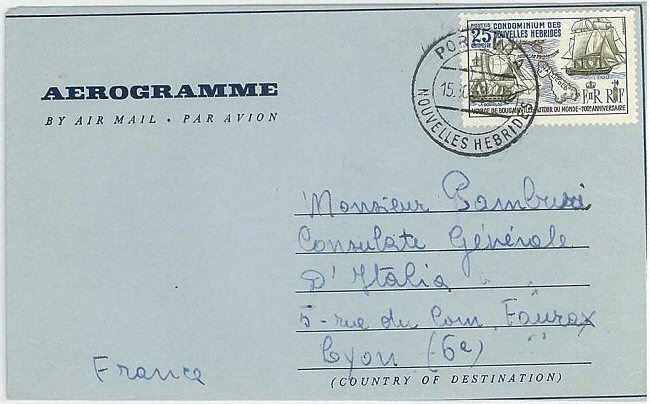 AEROGRAMME
BY AIR MAIL • PAR AVION
25
CONDOMINIUM DES
NOUVELLES HEBRIDES
RF
AUTOUR DU MONDE - 200e ANNIVERSAIRE
POR
15.
NOUVELLES HEBRIDES
Monsieur
Consulate Générale
D'Italia
5- rue du Com. Faurax
Lyon (6e)
France
(COUNTRY OF DESTINATION)